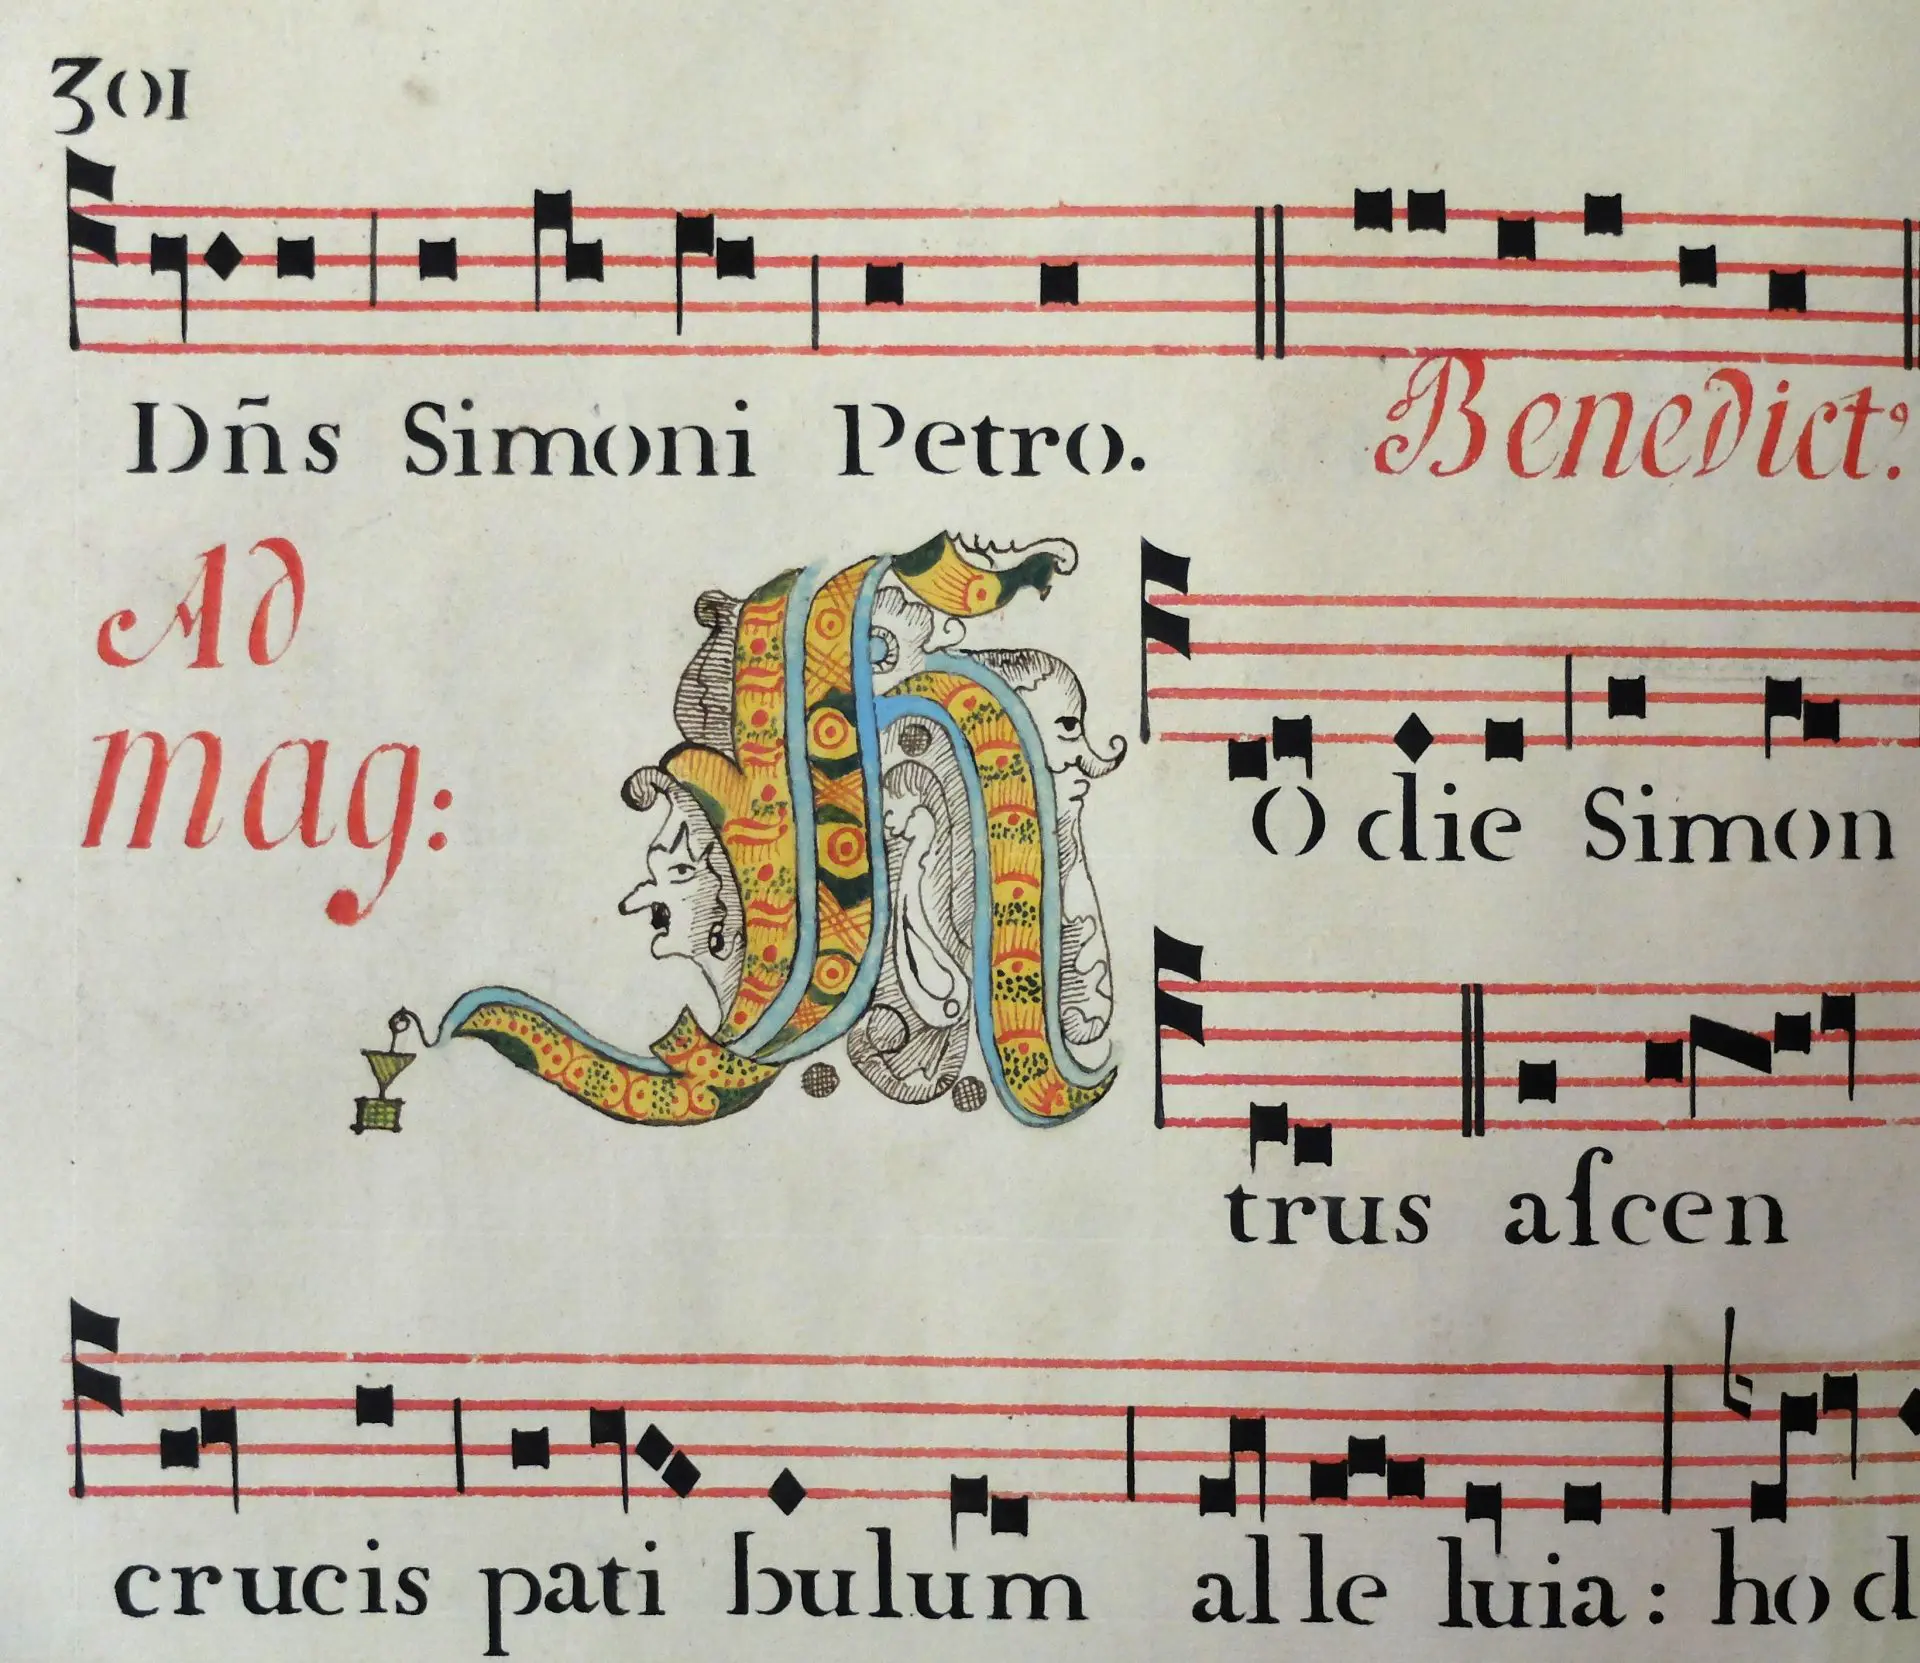 301
Dñs Simoni Petro. Benedict⁹:
Ad
mag:
HOdie Simon
trus aſcen
crucis pati bulum alle luia: hod